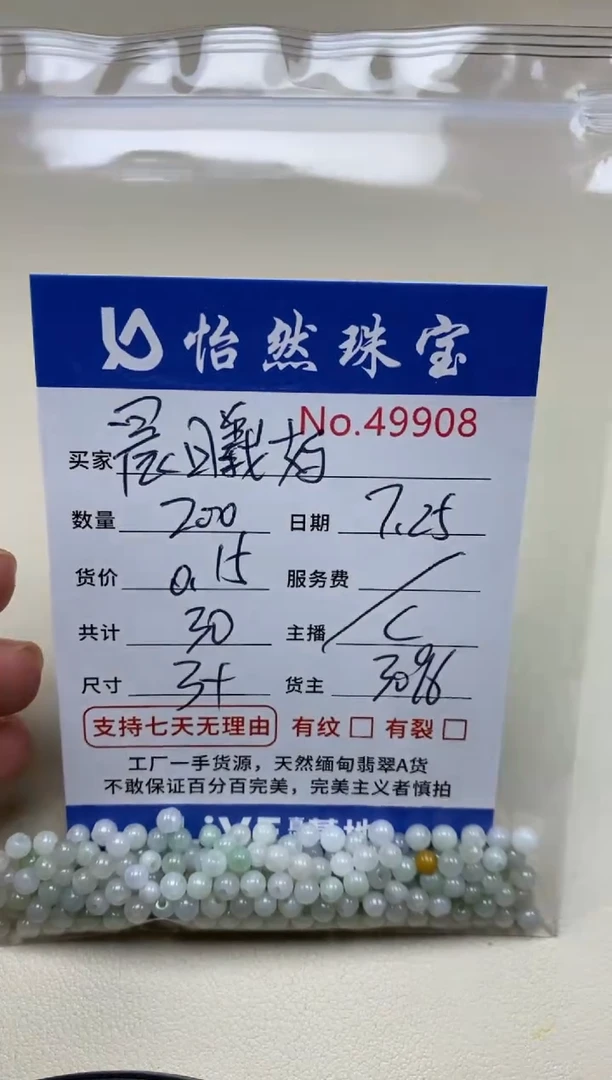 怡然珠宝
No.49908
买家 晨曦妈
数量 200 日期 7.25
货价 0.15 服务费 /
共计 30 主播 C
尺寸 3+ 货主 3096
支持七天无理由 有纹 □ 有裂 □
工厂一手货源，天然缅甸翡翠A货
不敢保证百分百完美，完美主义者慎拍